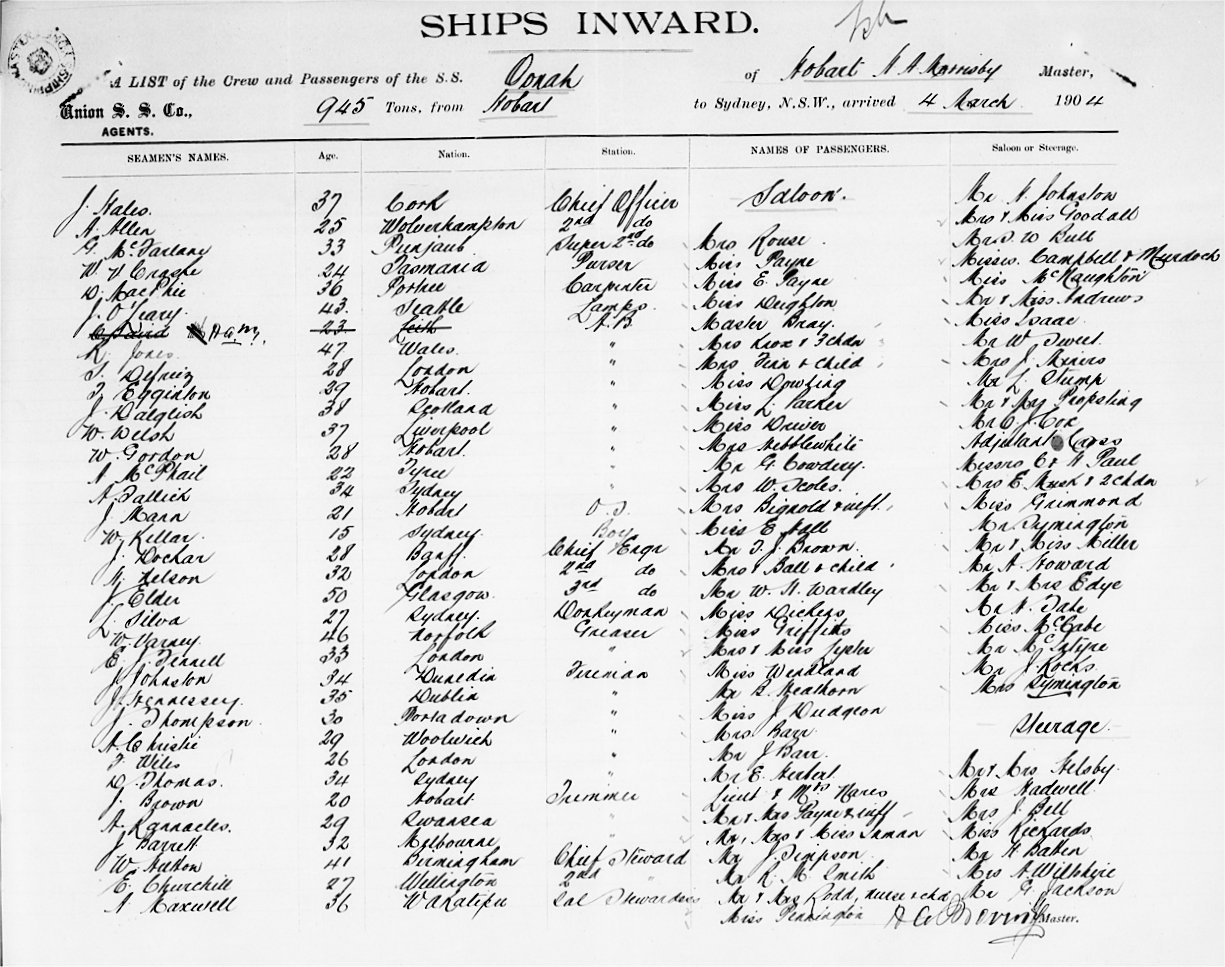 SHIPS INWARD.
A LIST of the Crew and Passengers of the S.S. Oonah of Hobart Master,
Union S. S. Co., 945 Tons, from Hobart to Sydney, N.S.W., arrived 4 March 1904
AGENTS.
SEAMEN'S NAMES. Age. Nation. Station. NAMES OF PASSENGERS. Saloon or Steerage.
J. Hales. 37 Cork Chief Officer Saloon. Mr H Johnston
A. Allen 25 Wolverhampton 2nd do Mrs & Miss Goodall
G. McFarlane 33 Punjaub Super 2nd do Mrs Rouse Mr W Bull
24 Tasmania Purser Miss Payne Misses Campbell & Murdoch
D. MacPhie 36 Carpenter Miss E. Payne Miss McNaughton
J. O'Leary 43 Seatle Lamps Miss Deighton Mr & Miss Andrews
23 Leith A.B. Master Bray Miss Isaac
R. Jones 47 Wales " Mrs Knox & 3 chdn Mr W. Sweet
28 London " Mrs Finn & child Mrs J. Miners
Egginton 29 Hobart " Miss Dowling Mr L. Stump
J. Dalglish 38 Scotland " Miss L. Parker Mr & Mrs Propsting
W. Welsh 37 Liverpool " Miss Driver Mr C. J. Cox
W. Gordon 28 Hobart " Mrs Nettlewhite Adjutant Cross
A McPhail 22 Tyree " Mr G. Cowdery Messrs C & H Paul
A. Tallick 34 Sydney " Mrs W. Scoles Mrs E. Mush & 2 chdn
J. Mann 21 Hobart O.S. Mrs Bignold & inft. Miss Grimmond
W. Killar 15 Sydney Boy Miss E. Hall Mr Symington
J. Dochar 28 Banff Chief Engr Mr F. J. Brown Mr & Miss Miller
Nelson 32 London 2nd do Mrs Ball & child Mr A Howard
J. Elder 50 Glasgow 3rd do Mr W. H. Wardley Mr & Mrs Edye
L. Silva 27 Sydney Donkeyman Miss Dickens Mr H. Tate
W. Varney 46 Norfolk Greaser Miss Griffiths Miss McCabe
E. J. Finnell 33 London " Mrs & Miss Lyster Mr McIntyre
J. Johnston 34 Dunedin Fireman Miss Wendland Mr J. Rocks
J. Hennessey 35 Dublin " Mr B. Heathorn Mrs Symington
J. Thompson 30 Portadown " Miss J Dudgeon
A Christie 29 Woolwich " Mrs Barr Steerage
F Wiles 26 London " Mr J Barr
D. Thomas 34 Sydney " Mr E. Herbert Mr & Mrs Helsby
J. Brown 20 Hobart Trimmer Lieut & Mrs Nares Mrs Hadwell
A. Rannacles. 29 Swansea " Mr & Mrs Payne & inft Mrs J. Bell
J Barrett 32 Melbourne " Mr, Mrs & Miss Inman Miss Rickards
W. Hutton 41 Birmingham Chief Steward Mr J. Simpson Mr H Baken
E. Churchill 27 Wellington 2nd " Mr R. M. Smith Mrs A. Wiltshire
A Maxwell 36 Wakatipu Sal Stewardess Mr & Mrs Rodd, nurse & chd Mr G. Jackson
Miss Pennington Master.